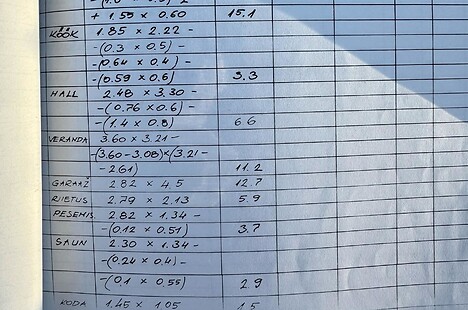 + 1.55 × 0.60 15.1
KÖÖK 1.85 × 2.22 -
-(0.3 × 0.5) -
-(0.64 × 0.4) -
-(0.59 × 0.6) 3.3
HALL 2.48 × 3.30 -
-(0.76 × 0.6) -
-(1.4 × 0.8) 6.6
VERANDA 3.60 × 3.21 -
-(3.60 - 3.08) × (3.21 -
- 2.61) 11.2
GARAAŽ 2.82 × 4.5 12.7
RIIETUS 2.79 × 2.13 5.9
PESEMIS 2.82 × 1.34 -
-(0.12 × 0.51) 3.7
SAUN 2.30 × 1.34 -
-(0.24 × 0.4) -
-(0.1 × 0.55) 2.9
KODA 1.45 × 1.05 1.5